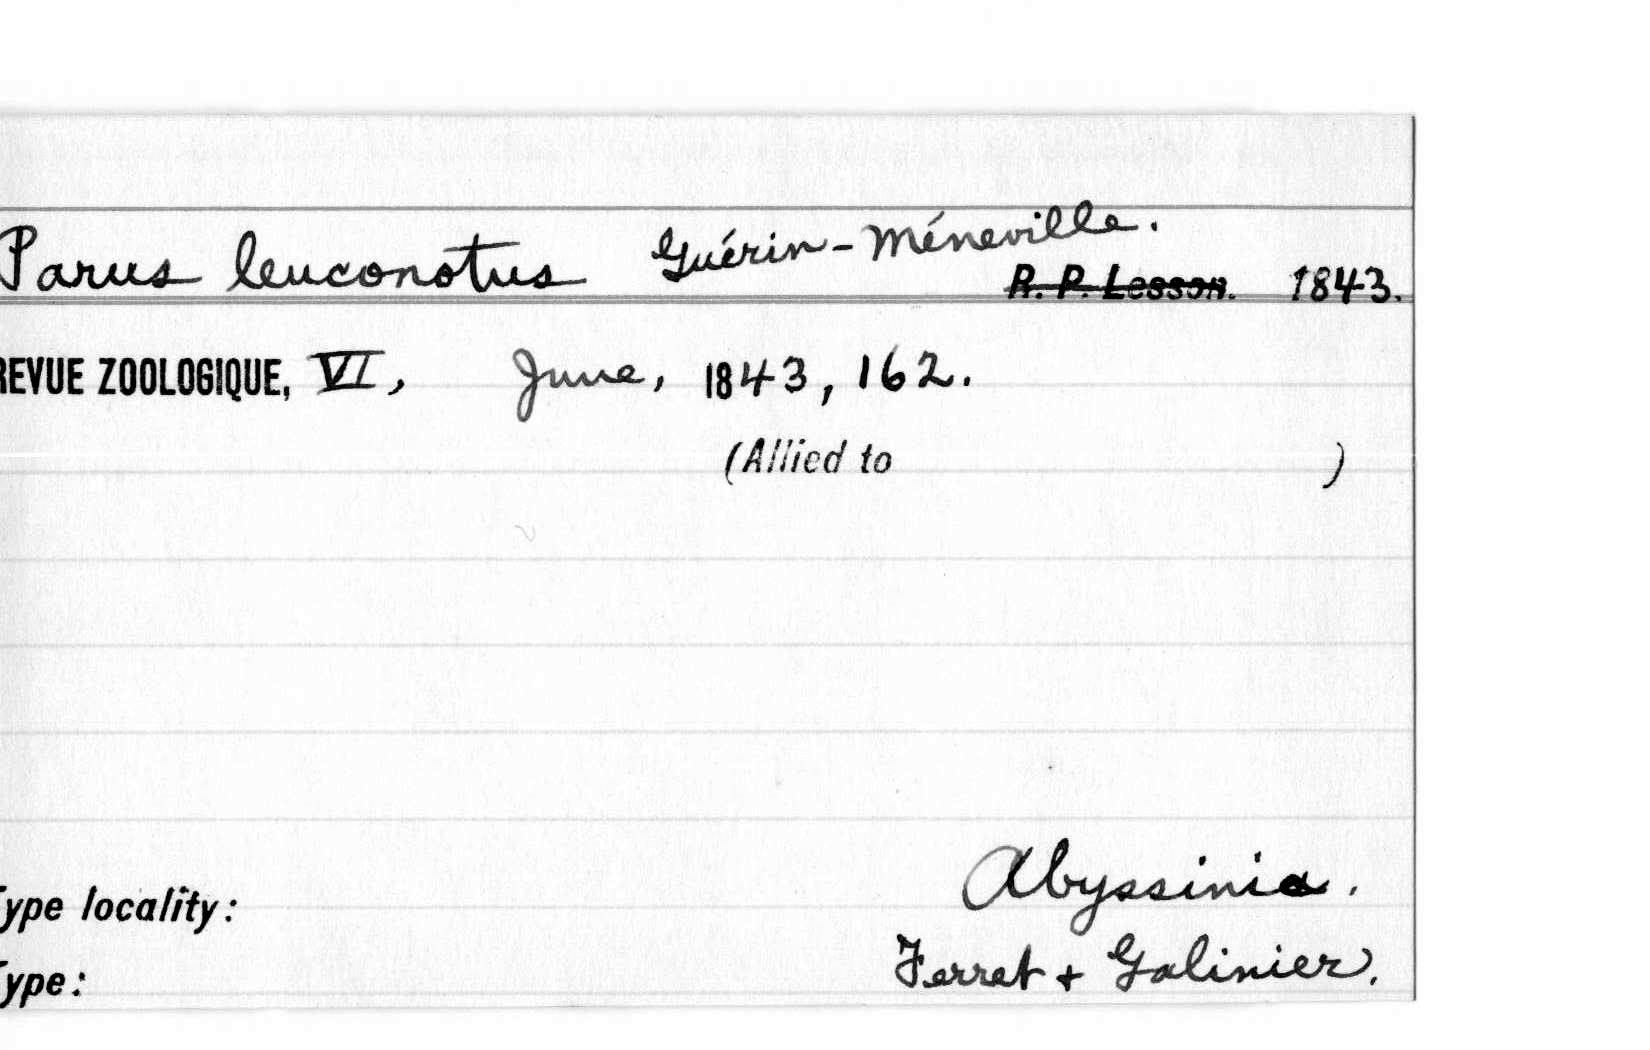 Parus leuconotus Guérin-Méneville.
R. P. Lesson. 1843.
REVUE ZOOLOGIQUE, VI, June, 1843, 162.
(Allied to )
Type locality: Abyssinia.
Type: Ferret + Galinier.